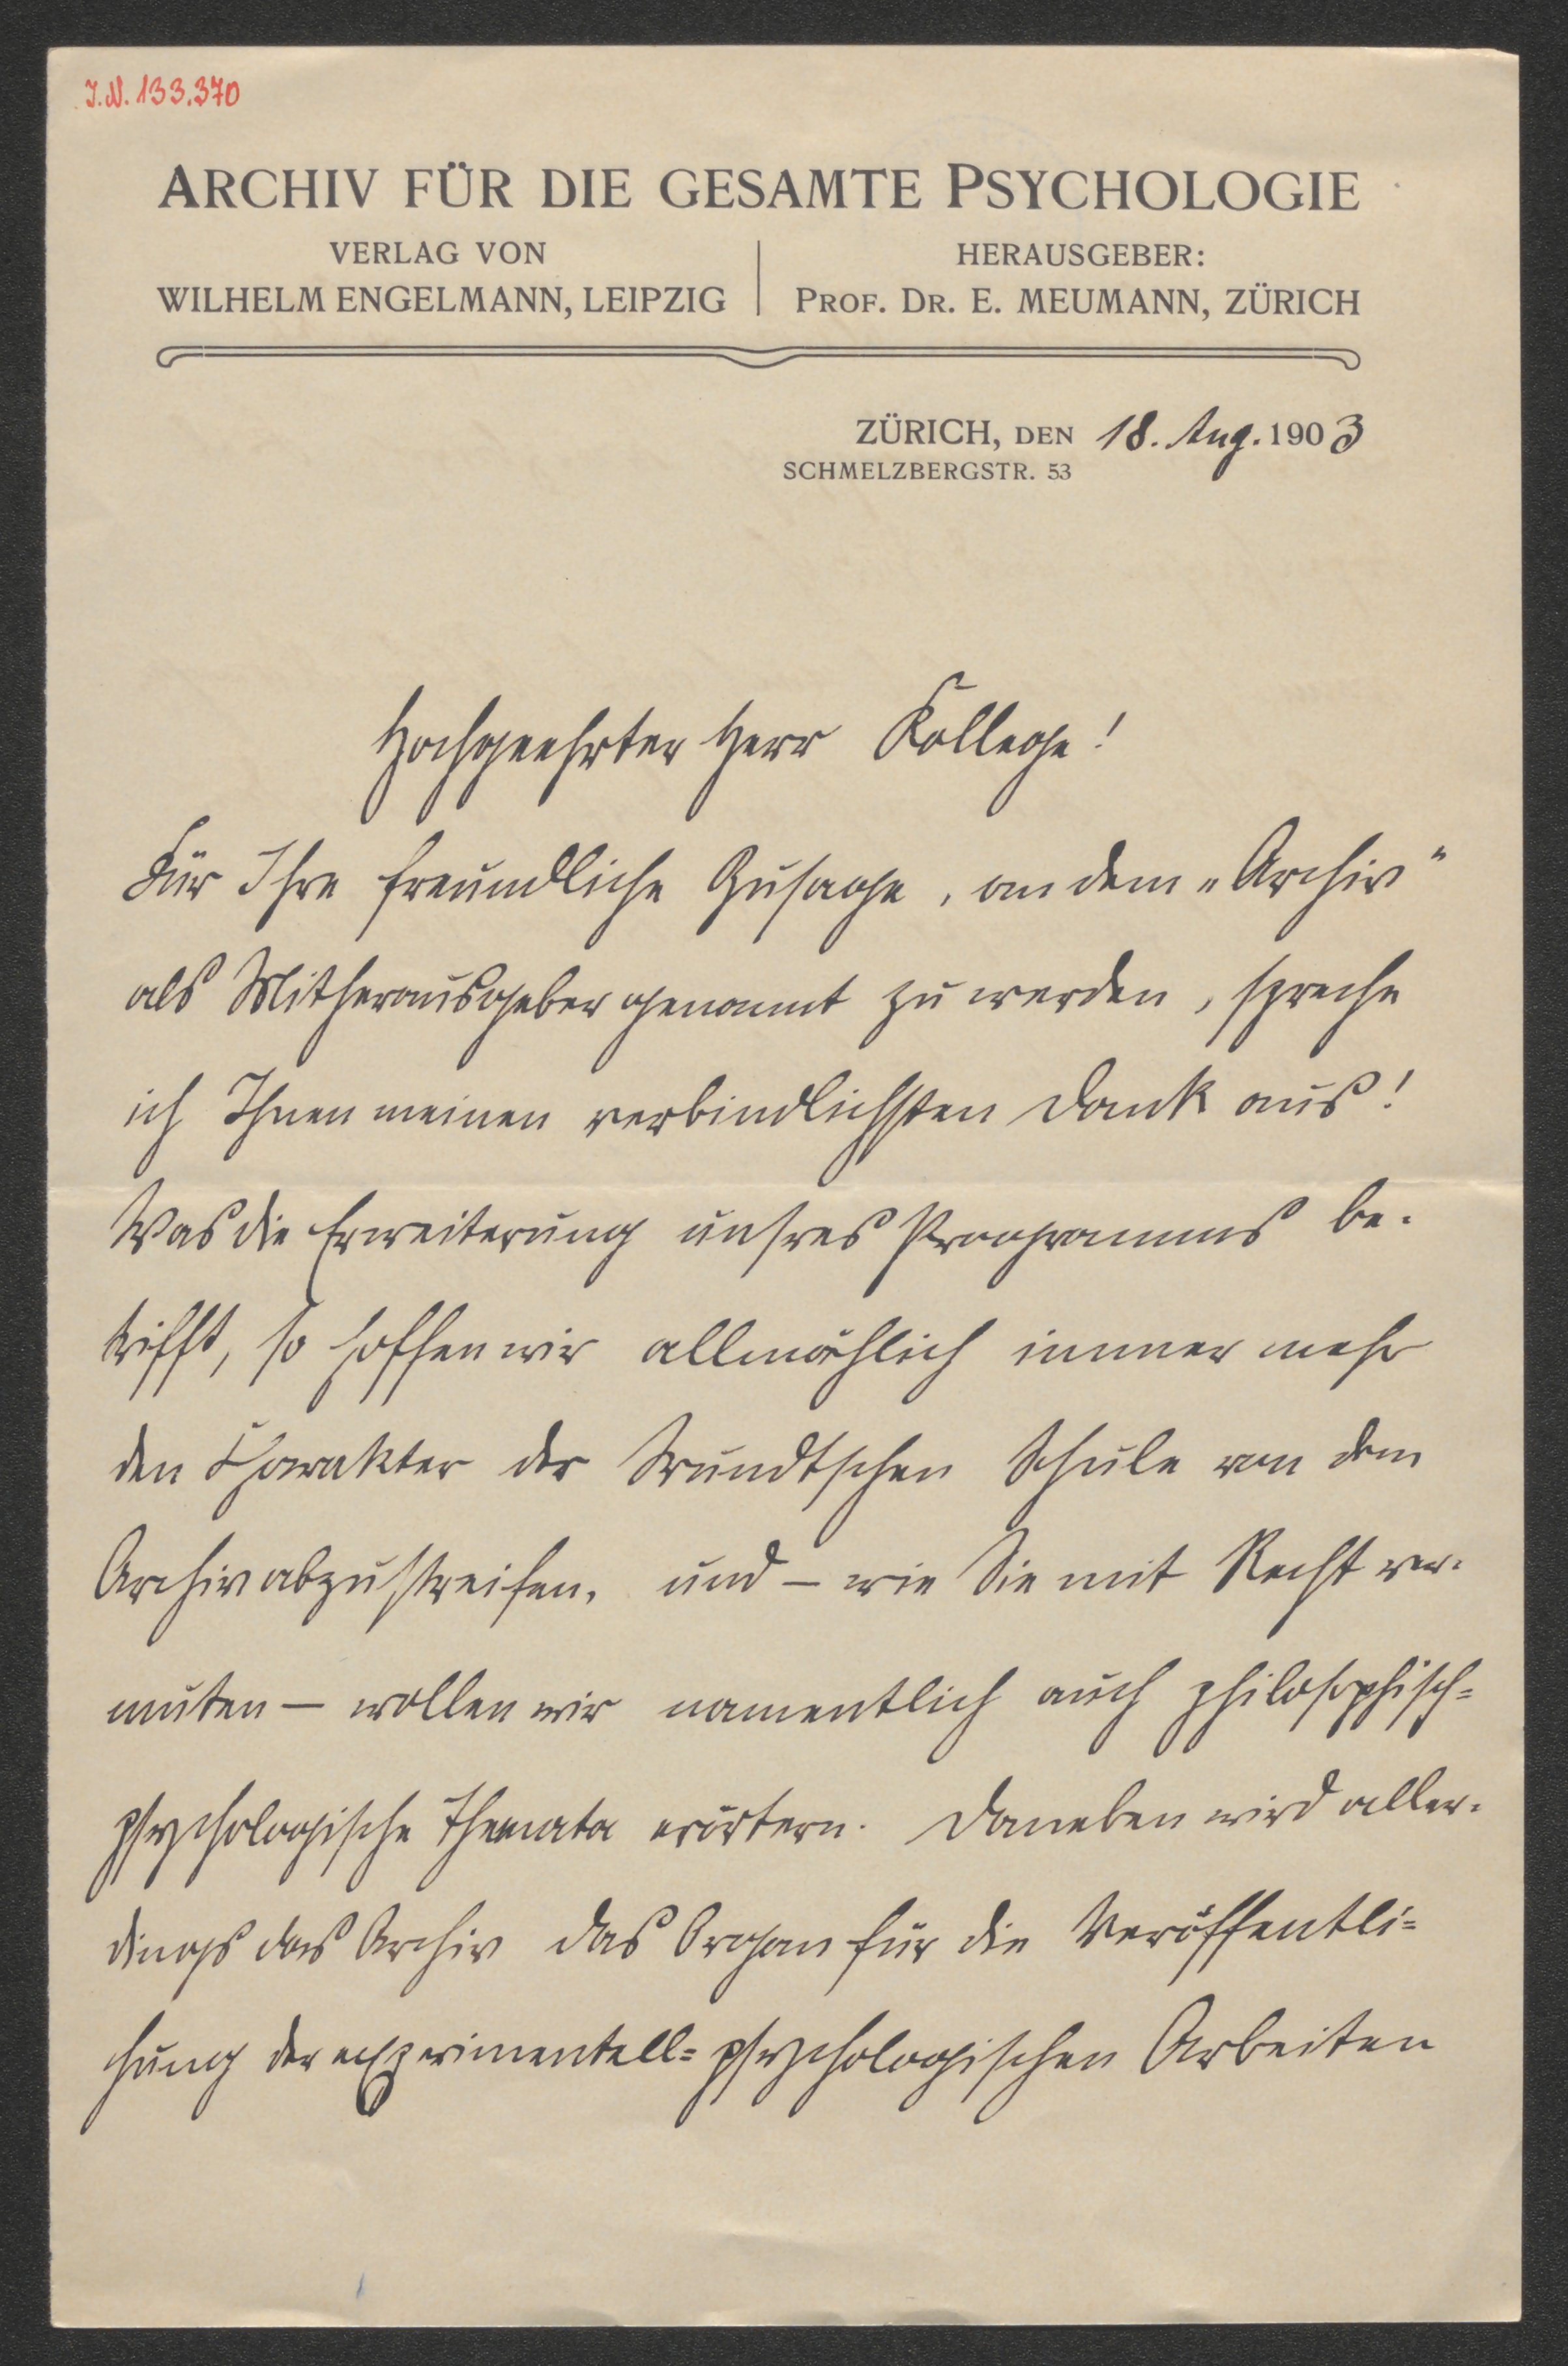 I.N. 133.370
ARCHIV FÜR DIE GESAMTE PSYCHOLOGIE
VERLAG VON
WILHELM ENGELMANN, LEIPZIG
HERAUSGEBER:
PROF. DR. E. MEUMANN, ZÜRICH
ZÜRICH, DEN 18. Aug. 1903
SCHMELZBERGSTR. 53
Hochgeehrter Herr Kollege!
Für Ihre freundliche Zusage, an dem „Archiv“
als Mitherausgeber genannt zu werden, spreche
ich Ihnen meinen verbindlichsten Dank aus!
Was die Erweiterung unsres Programms be-
trifft, so hoffen wir allmählich immer mehr
den Charakter der Wundtschen Schule von dem
Archiv abzustreifen, und – wie Sie mit Recht ver-
muten – wollen wir namentlich auch philosophisch=
psychologische Themata erörtern. Daneben wird aller-
dings das Archiv das Organ für die Veröffentli=
chung der experimentell=psychologischen Arbeiten